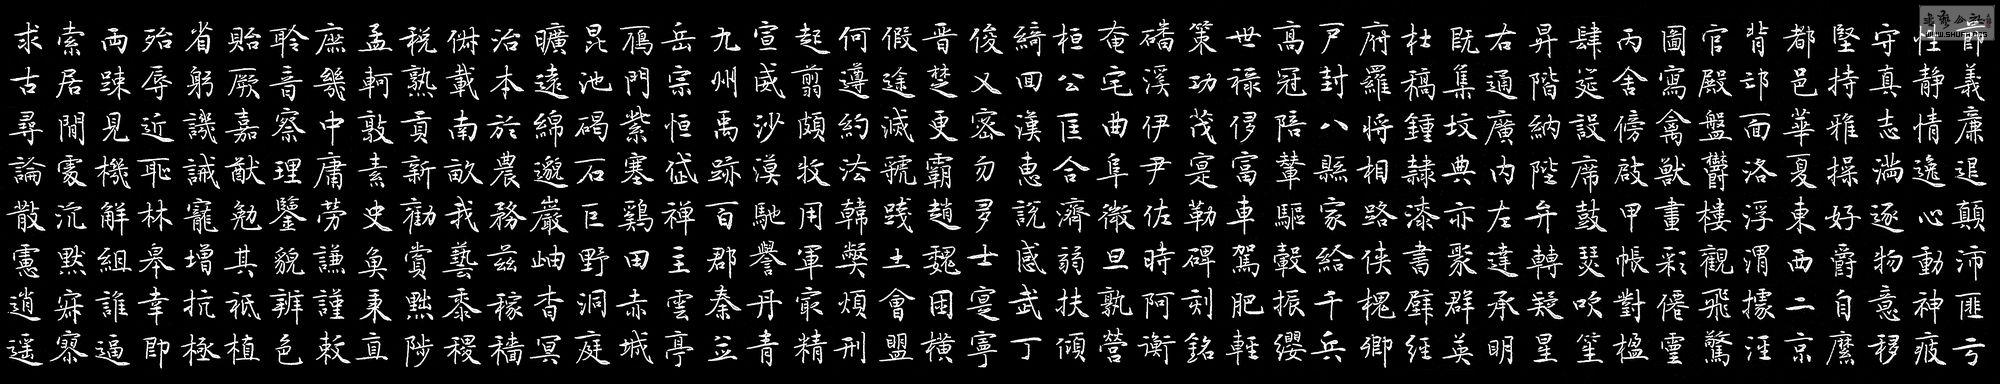 節義廉退顛沛匪亏
性静情逸心動神疲
守真志滿逐物意移
堅持雅操好爵自縻
都邑華夏東西二京
背邙面洛浮渭據涇
宫殿盤鬱樓觀飛驚
圖寫禽獸畫彩僊靈
丙舍傍啟甲帳對楹
肆筵設席鼓瑟吹笙
昇階納陛弁轉疑星
右通廣内左達承明
既集墳典亦聚群英
杜稿鍾隸漆書壁經
府羅將相路俠槐卿
戶封八縣家給千兵
高冠陪輦驅轂振纓
世祿侈富車駕肥輕
策功茂寔勒碑刻銘
磻溪伊尹佐時阿衡
奄宅曲阜微旦孰營
桓公匡合濟弱扶傾
綺回漢惠說感武丁
俊乂密勿多士寔寧
晋楚更霸趙魏困橫
假途滅虢踐土會盟
何遵約法韓弊煩刑
起翦頗牧用軍最精
宣威沙漠馳譽丹青
九州禹跡百郡秦並
岳宗恒岱禪主雲亭
鴈門紫塞鷄田赤城
昆池碣石巨野洞庭
曠遠綿邈巖岫杳冥
治本於農務茲稼穡
俶載南畝我藝黍稷
税熟貢新勸賞黜陟
孟軻敦素史魚秉直
庶幾中庸勞謙謹敕
聆音察理鑒貌辨色
貽厥嘉猷勉其祗植
省躬譏誡寵增抗極
殆辱近恥林皋幸即
兩疎見機解組誰逼
索居閒處沉默寂寥
求古尋論散慮逍遥